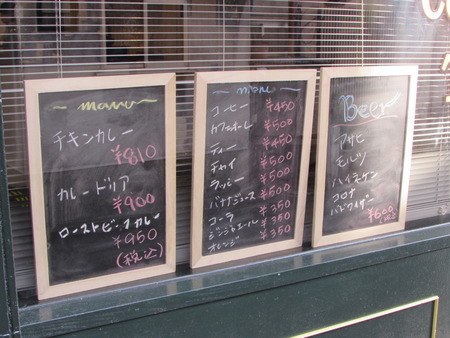 menu
チキンカレー
¥810
カレードリア
¥900
ローストビーフカレー
¥950
(税込)
menu
コーヒー ¥450
カフェオーレ ¥500
ティー ¥450
チャイ ¥500
ラッシー ¥500
バナナジュース ¥500
コーラ ¥350
ジンジャエール ¥350
オレンジ ¥350
Beer
アサヒ
モルツ
ハイネケン
コロナ
バドワイザー
¥600